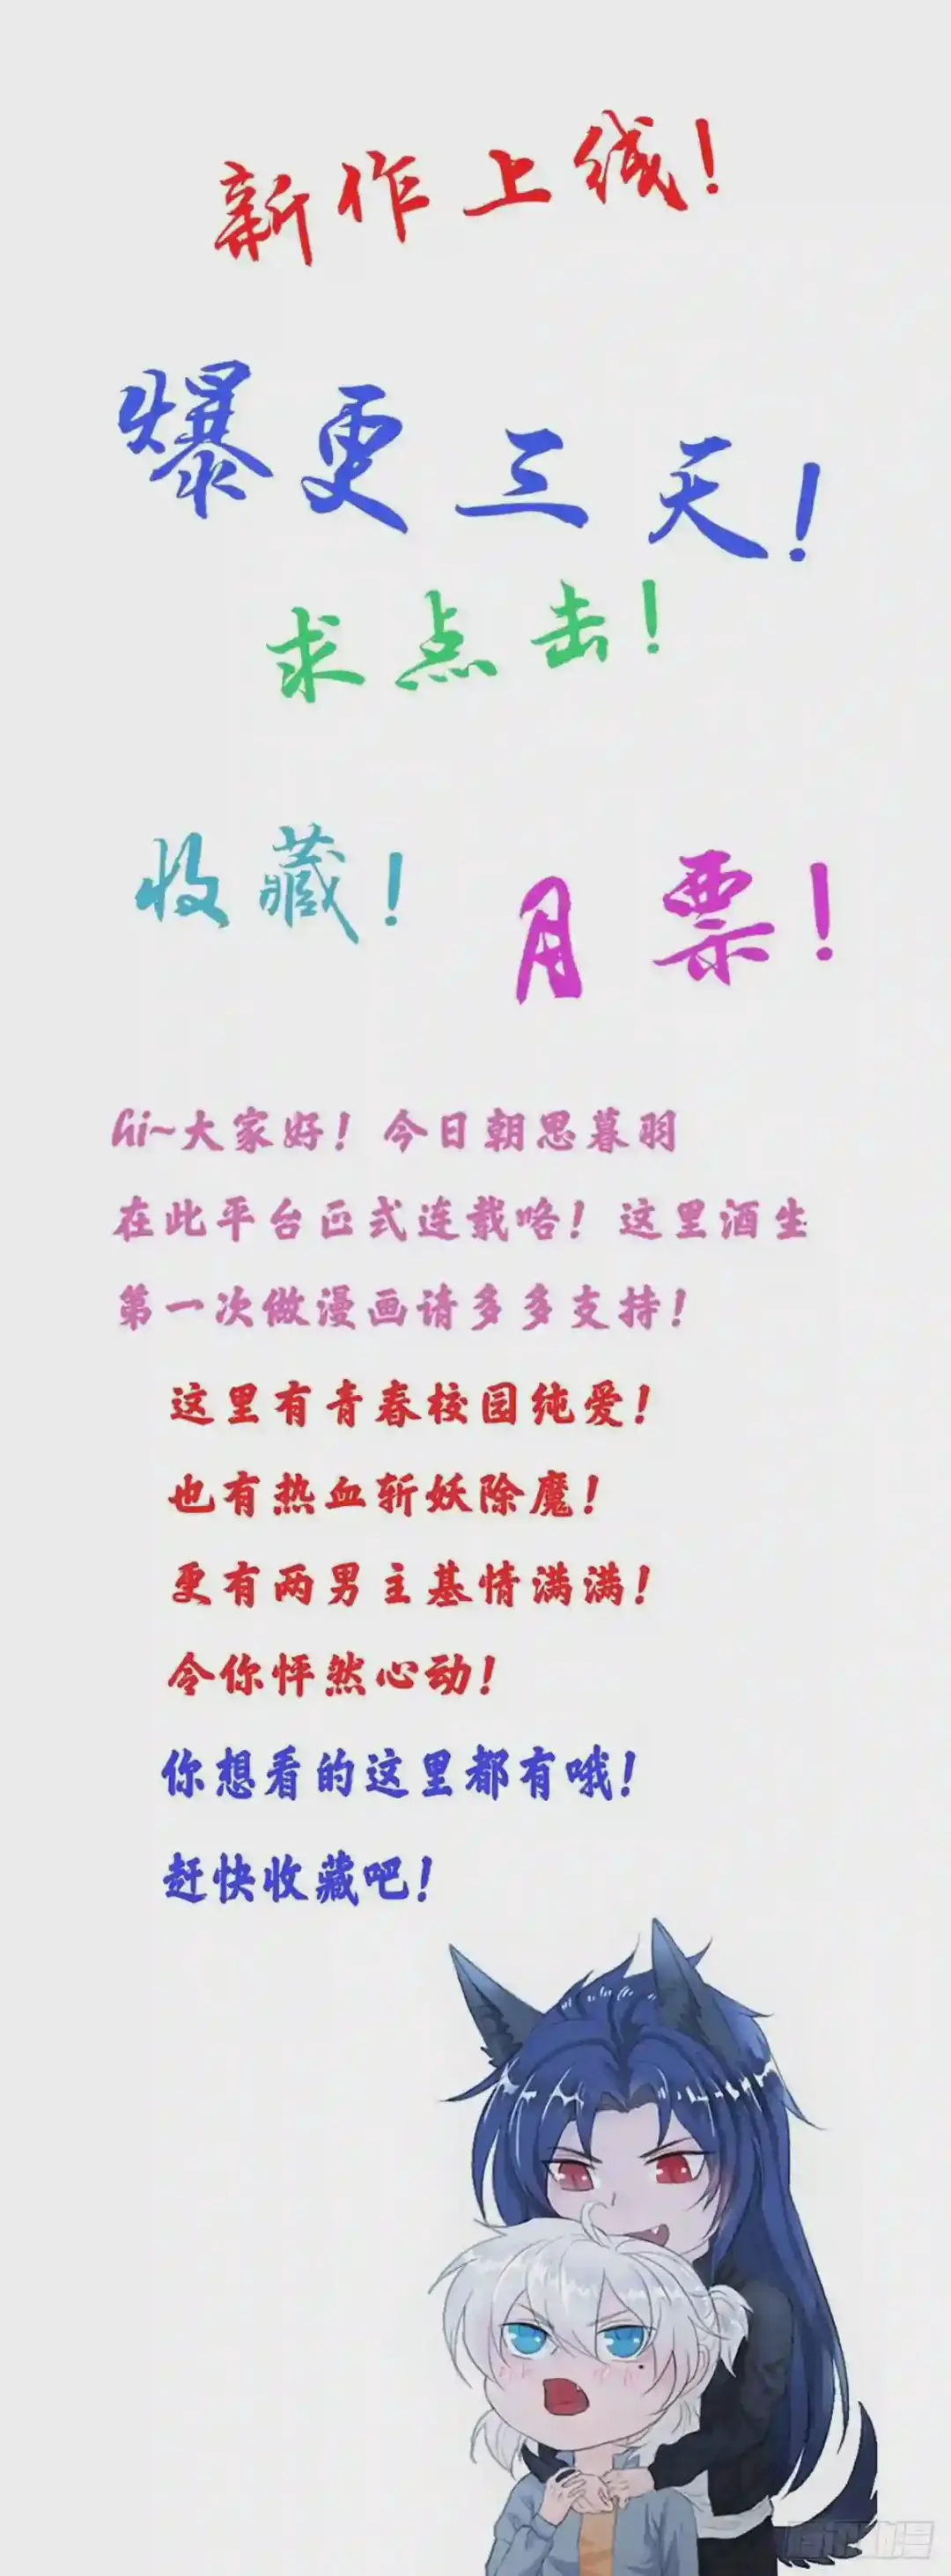 新作上线！
爆更三天！
求点击！
收藏！ 月票！
hi~大家好！今日朝思暮羽
在此平台正式连载咯！这里酒生
第一次做漫画请多多支持！
这里有青春校园纯爱！
也有热血斩妖除魔！
更有两男主基情满满！
令你怦然心动！
你想看的这里都有哦！
赶快收藏吧！